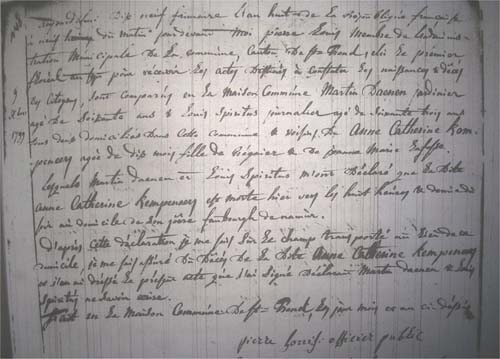 Aujourd'hui Dix neuf frimaire L'an huit de La république française
à neuf heures du matin pardevant moi pierre Louis Membre de l'adminis-
tration Municipale De La commune, Canton De St Trond, élû Le premier
floréal an pour recevoir Les actes Destinés à constater Les naissances & décès
des Citoyens, sont comparus en La Maison Commune Martin Daenen jardinier
agé De Soixante ans & Louis Spiritus journalier agé de soixante trois ans
tous deux domiciliés Dans cette commune & voisins De Anne Catherine Kem-
peneers agée de dix mois fille de & De Marie
Lesquels Martin daenen et Louis Spiritus m'ont Déclaré que La Dite
Anne Catherine Kempeneers est morte hier vers les huit heures & demie du
soir au domicile de son père faubourgh de namur.
D'après cette déclaration je me suis sur Le champ transporté au Lieu de ce
domicile, je me suis assuré Du Décès De La Dite Anne Catherine Kempeneers
et j'en ai dressé Le présent acte que j'ai signé Déclarant Martin daenen & Louis
Spiritus ne savoir écrire.
fait en La Maison Commune De St Trond Les jour mois et an ci dessus
pierre Louis officier public
9
Xbre
1799